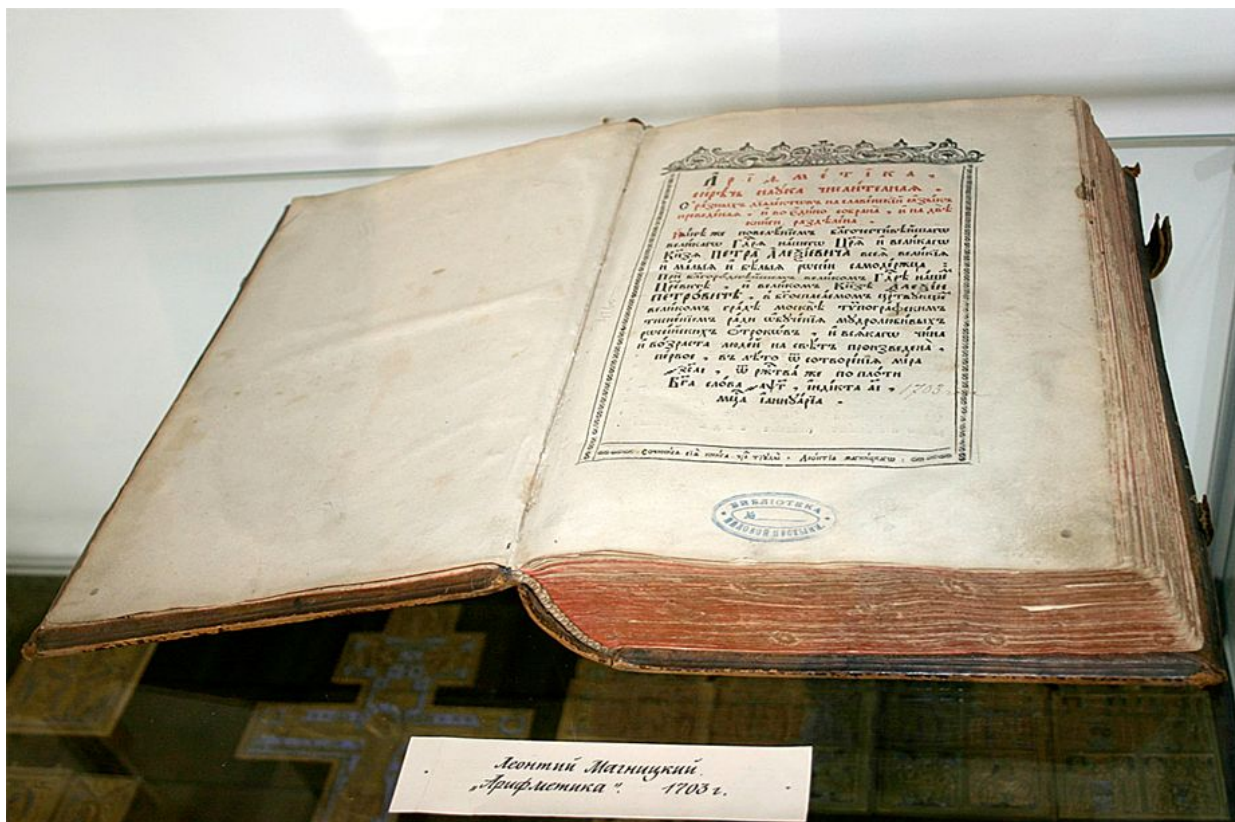 Арїѳмétіка,
сирѣчь наука числителная.
С̾ разныхъ дїалектѡвъ на славенскїй ѧзыкъ
преведеная, и во едино собрана, и на двѣ
книги раздѣлена.
Нн҃ѣ же повелѣнїемъ бл҃гочестивѣйшагѡ
великагѡ Гд҃рѧ нашегѡ Цр҃ѧ и великагѡ
Кн҃зѧ ПЕТРА АЛЕѮІЕВИЧА всеѧ великїѧ
и малыѧ и бѣлыѧ рѡссїи самодержца:
При бл҃городнѣйшемъ великомъ Гд҃рѣ нашемъ
Цр҃евичѣ, и великомъ Кн҃зѣ АЛЕѮІИ
ПЕТРОВИЧѢ, в̾ бг҃оспасаемомъ цр҃твующемъ
великомъ градѣ москвѣ тѵпографскимъ
тисненїемъ ради ѡбученїѧ мудролюбивыхъ
рѡссїйскихъ ѻтрокѡвъ, и всѧкагѡ чина
и возраста людей на свѣтъ произведена,
первое, въ лѣто ѿ сотворенїѧ мїра
҂зс҃аі, ѿ рж҃тва же по плоти
Бг҃а слова ҂аѱ҃г, індікта аі,
мц҃а іаннуарїа.
1703
Сочинисѧ сїѧ книга чрез̾ труды Леонтїа магницкагѡ.
БИБЛІОТЕКА
№
Леонтий Магницкий
„Арифметика“. 1703 г.